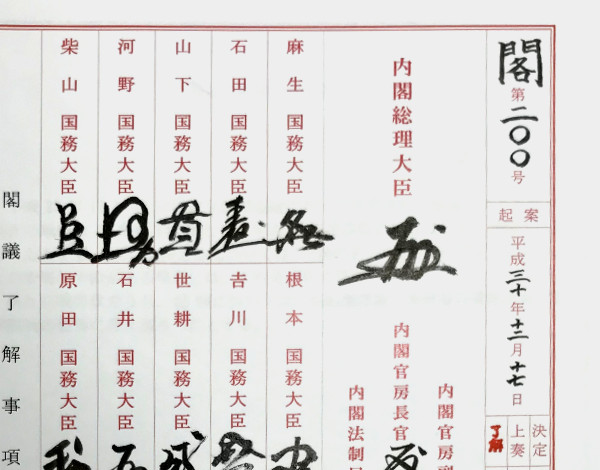 閣第二〇〇号
起案
平成三十年十二月十七日
決定
上奏
了解
内閣総理大臣
内閣官房長官
内閣官房
内閣法制局
麻生国務大臣
石田国務大臣
山下国務大臣
河野国務大臣
柴山国務大臣
根本国務大臣
𠮷川国務大臣
世耕国務大臣
石井国務大臣
原田国務大臣
閣議了解事項